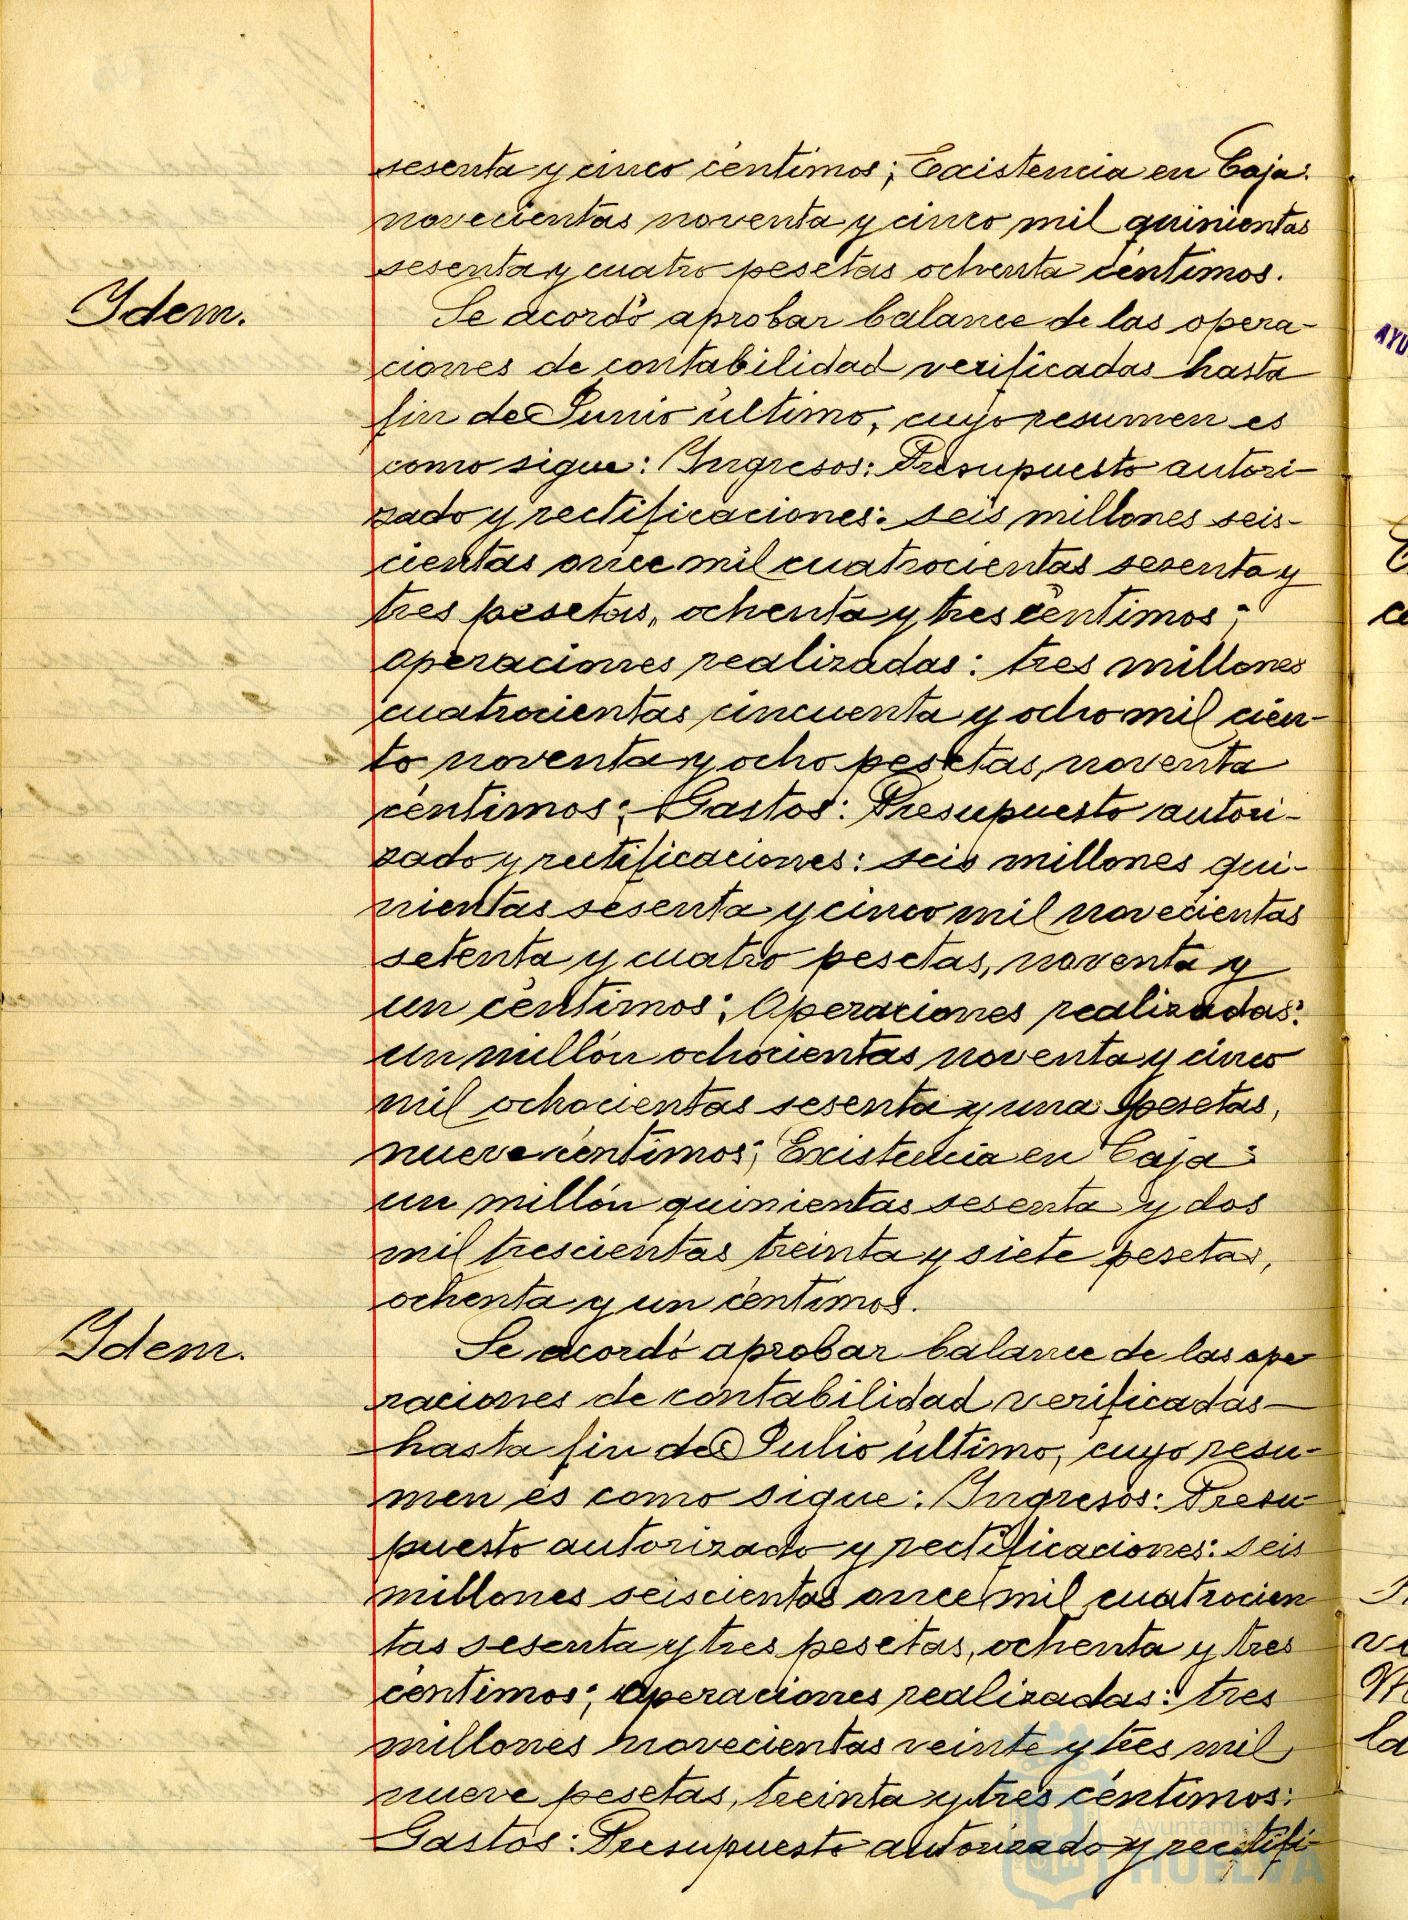 sesenta y cinco céntimos; Existencia en Caja:
novecientas noventa y cinco mil quinientas
sesenta y cuatro pesetas ochenta céntimos.
Idem.
Se acordó aprobar balance de las opera-
ciones de contabilidad verificadas hasta
fin de Junio último, cuyo resumen es
como sigue: Ingresos: Presupuesto autori-
zado y rectificaciones: seis millones seis-
cientas once mil cuatrocientas sesenta y
tres pesetas, ochenta y tres céntimos;
operaciones realizadas: tres millones
cuatrocientas cincuenta y ocho mil cien-
to noventa y ocho pesetas, noventa
céntimos; Gastos: Presupuesto autori-
zado y rectificaciones: seis millones qui-
nientas sesenta y cinco mil novecientas
setenta y cuatro pesetas, noventa y
un céntimos; Operaciones realizadas:
un millón ochocientas noventa y cinco
mil ochocientas sesenta y una pesetas,
nueve céntimos; Existencia en Caja:
un millón quinientas sesenta y dos
mil trescientas treinta y siete pesetas,
ochenta y un céntimos.
Idem.
Se acordó aprobar balance de las ope
raciones de contabilidad verificadas
hasta fin de Julio último, cuyo resu-
men es como sigue: Ingresos: Presu-
puesto autorizado y rectificaciones: seis
millones seiscientas once mil cuatrocien
tas sesenta y tres pesetas, ochenta y tres
céntimos; operaciones realizadas: tres
millones novecientas veinte y tres mil
nueve pesetas, treinta y tres céntimos:
Gastos: Presupuesto autorizado y rectifi-
Ayuntamiento de
HUELVA